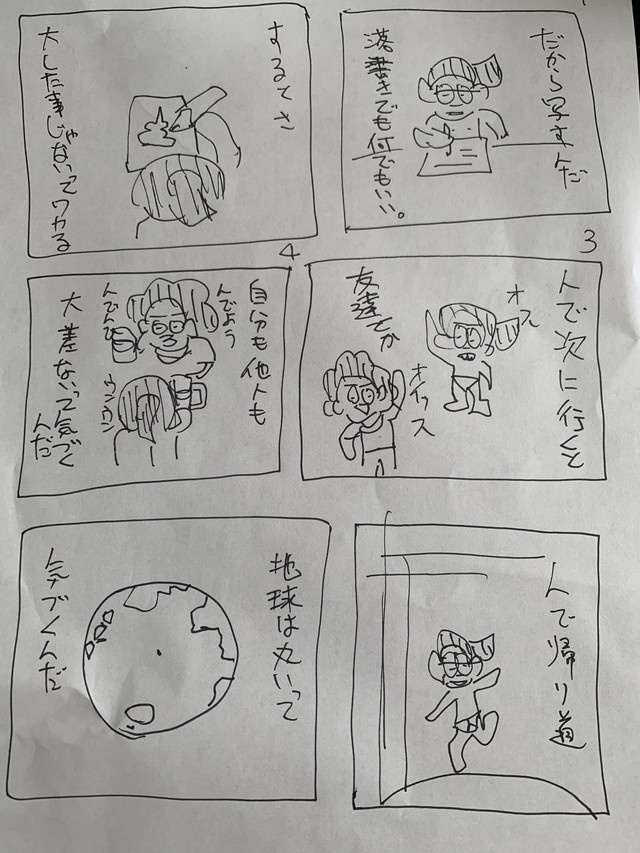 だから写すんだ
落書きでも何でもいい。
するてさ
大した事じゃないってワカる
3
んで次に行くと
オス
友達とか
オイッス
4
自分も他人も
んでよう
んでんで
ウンウン
大差ないって気づく
んだ
んで帰り道
地球は丸いって
気づくんだ